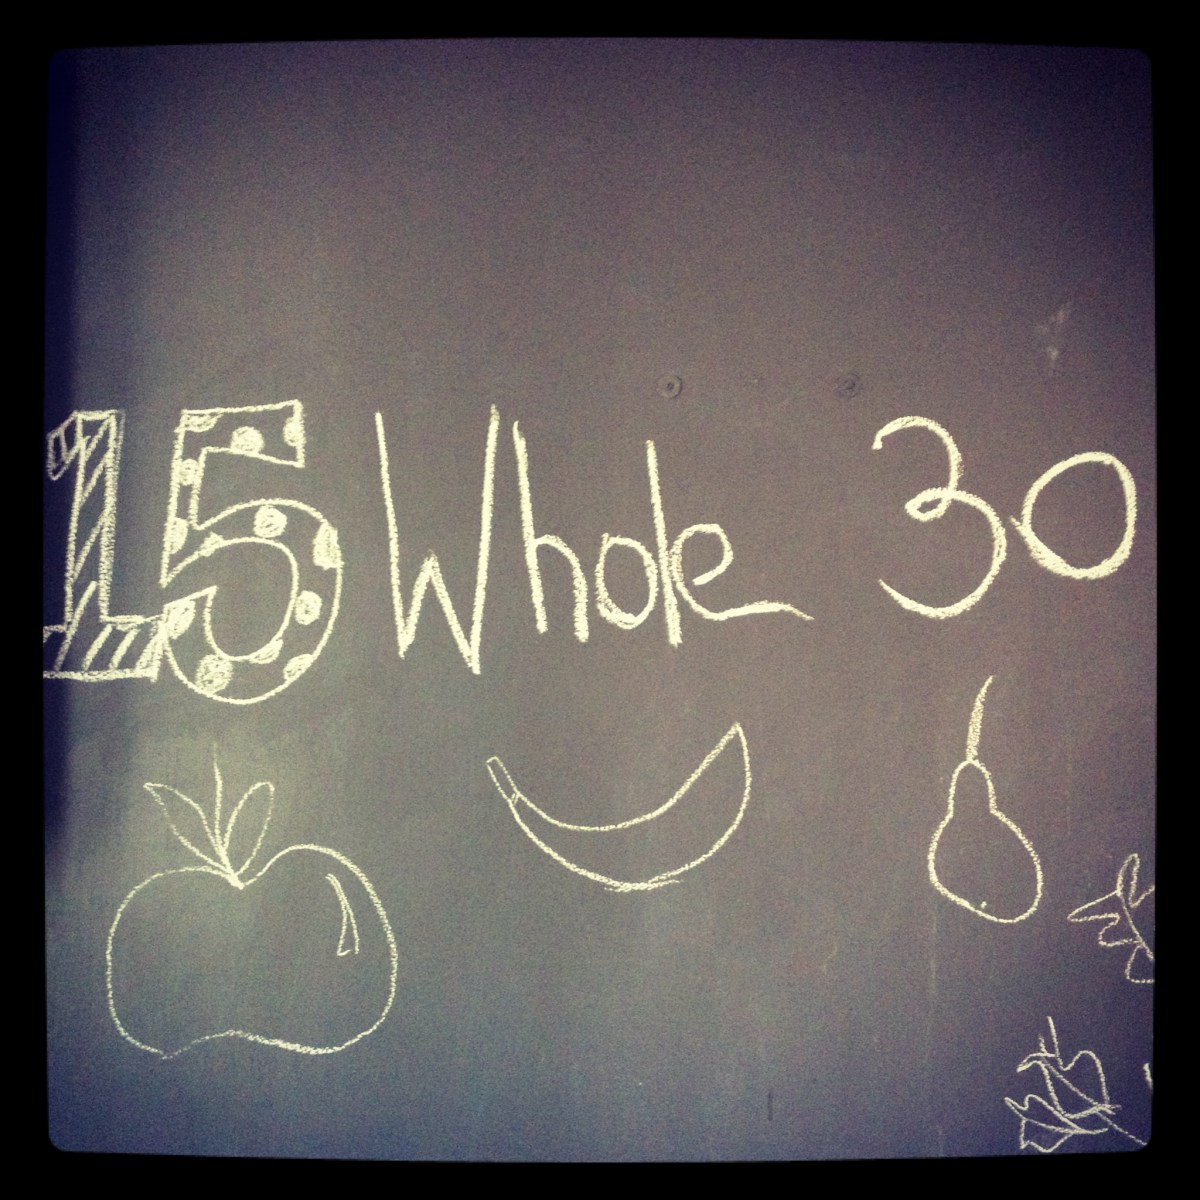 15 Whole 30